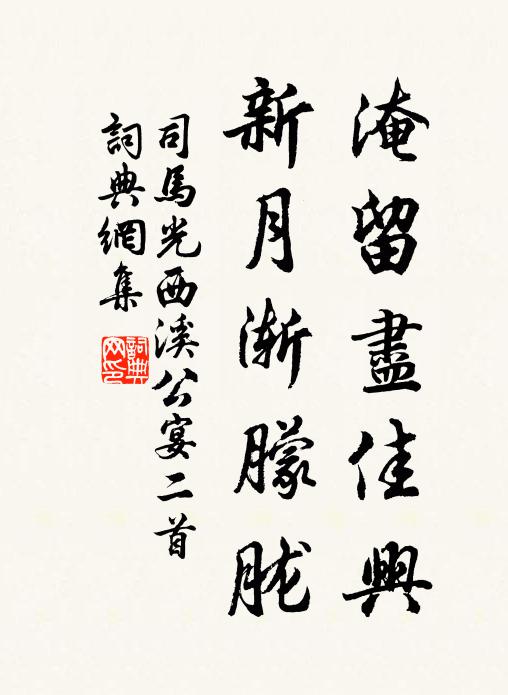 淹留盡佳興
新月漸朦胧
司馬光西溪公宴二首
詞典網集
詞典網印